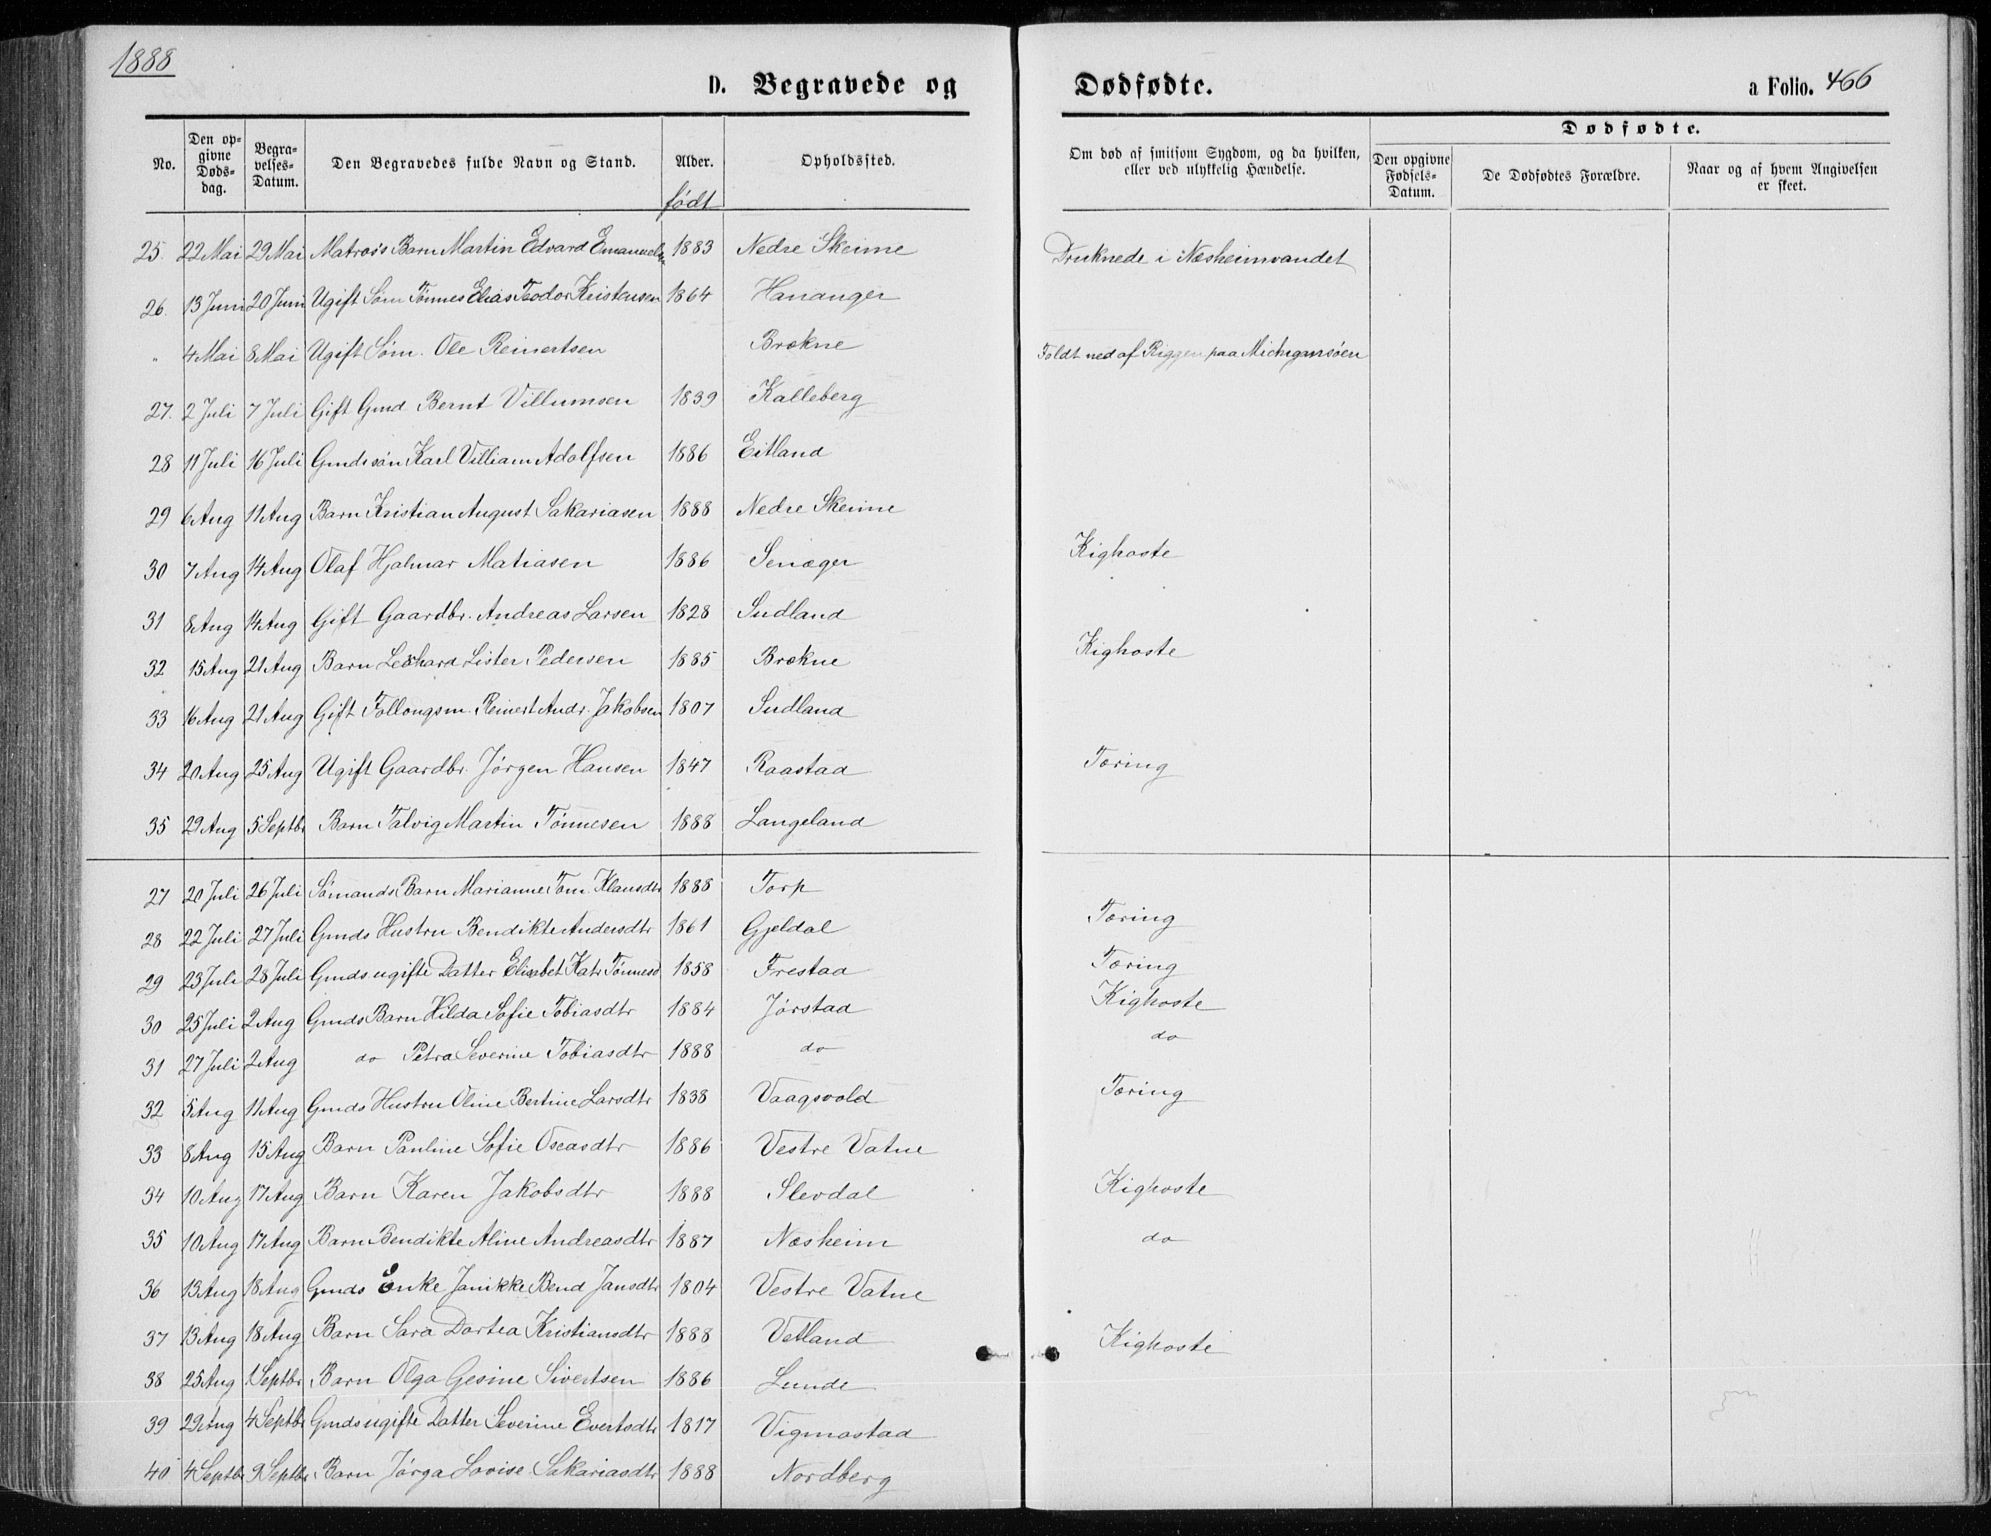 1888
D. Begravede og Dødfødte. a Folio. 466
No. Den opgivne Dødsdag. Begravelses-Datum. Den Begravedes fulde Navn og Stand. Alder. født Opholdssted. Om død af smitsom Sygdom, og da hvilken, eller ved ulykkelig Hændelse. Dødfødte. Den opgivne Fødsels-Datum. De Dødfødtes Forældre. Naar og af hvem Angivelsen er skeet.
25. 22 Mai 29 Mai Matros's Barn Martin Edvard Emanuels. 1883 Nedre Skeime Druknede i Næsheimvandet
26. 13 Juni 20 Juni Ugift Søm Tønnes Elias Teodor Kristensen 1864 Hananger
" 4 Mai 8 Mai Ugift Søm. Ole Reinertsen Brekne Faldt ned af Riggen paa Michigansøen
27. 2 Juli 7 Juli Gift Gmd Bernt Villumsen 1839 Kalleberg
28 11 Juli 16 Juli Gmds søn Karl Villiam Adolfsen 1886 Eitland
29 6 Aug 11 Aug Barn Kristian August Sakariasen 1888 Nedre Skeime
30 7 Aug 14 Aug Olaf Hjalmar Matiasen 1886 Seneger Kighoste
31 8 Aug 14 Aug Gift Gaardbr. Andreas Larsen 1828 Sudland
32 15 Aug 21 Aug Barn Leonhard Lister Pedersen 1885 Brekne Kighoste
33 16 Aug 21 Aug Gift Follougsm. Reinert Andr. Jakobsen 1807 Sudland
34 20 Aug 25 Aug Ugift Gaardbr. Jørgen Hansen 1847 Raastad Tæring
35 29 Aug 5 Septbr Barn Talvig Martin Tønnesen 1888 Langeland
27 20 Juli 26 Juli Sømands Barn Marianne Tom. Klausdtr 1888 Torp
28 22 Juli 27 Juli Gmds Hustru Bendikte Andersdtr 1861 Gjeldal Tæring
29 23 Juli 28 Juli Gmds ugifte Datter Elisabet Katr Tønnesd 1858 Frestad Tæring
30 25 Juli 2 Aug Gmds Barn Hilda Sofie Tobiasdtr 1884 Jørstad Kighoste
31 27 Juli 2 Aug do Petra Severine Tobiasdtr 1888 do do
32 5 Aug 11 Aug Gmds Hustru Oline Bertine Larsdtr 1838 Vaagsvold Tæring
33 8 Aug 15 Aug Barn Pauline Sofie Oseasdtr 1886 Vestre Vatne
34 10 Aug 17 Aug Barn Karen Jakobsdtr 1888 Slevdal Kighoste
35 10 Aug 17 Aug Barn Bendikte Aline Andreasdtr 1887 Næsheim do
36 13 Aug 18 Aug Gmds Enke Janikke Bend Jansdtr 1804 Vestre Vatne
37 13 Aug 18 Aug Barn Sara Dortea Kristiansdtr 1888 Vetland Kighoste
38 25 Aug 1 Septbr Barn Olga Gesine Sivertsen 1886 Lunde
39 29 Aug 4 Septbr Gmds ugifte Datter Severine Evertsdtr 1817 Vigmostad
40 4 Septbr 9 Septbr Barn Jørga Lovise Sakariasdtr 1888 Nordberg